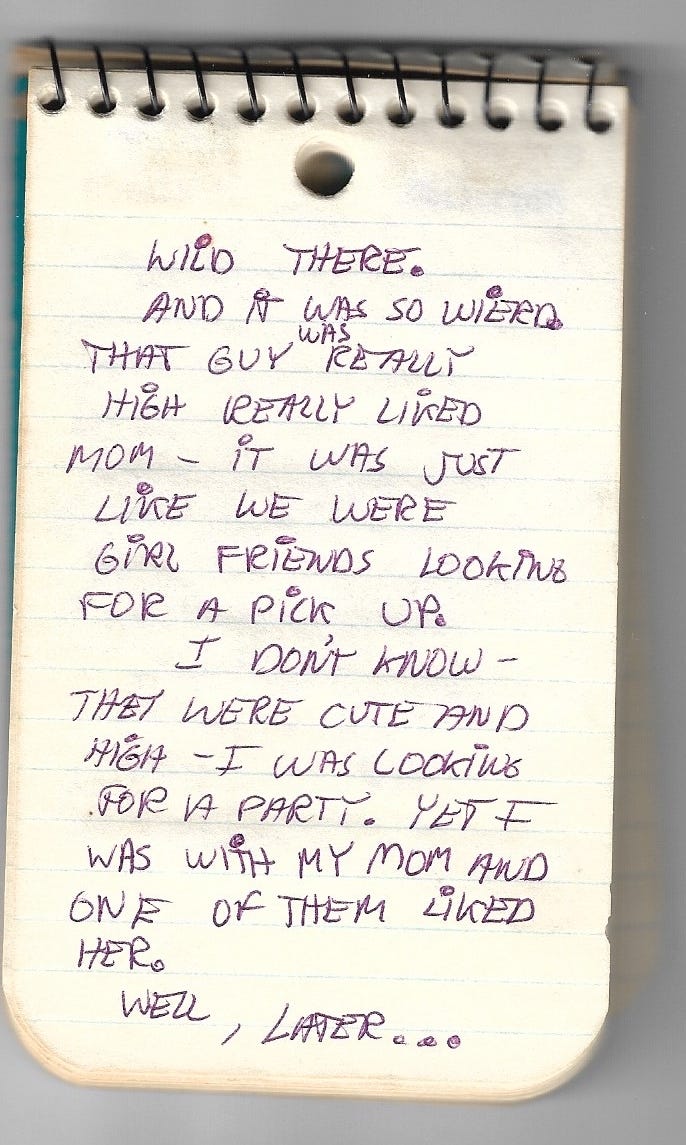 WILD THERE.
AND IT WAS SO WIERD.
WAS
THAT GUY REALLY
HIGH REALLY LIKED
MOM - IT WAS JUST
LIKE WE WERE
GIRL FRIENDS LOOKING
FOR A PICK UP.
I DON'T KNOW -
THEY WERE CUTE AND
HIGH - I WAS LOOKING
FOR A PARTY. YET I
WAS WITH MY MOM AND
ONE OF THEM LIKED
HER.
WELL, LATER....